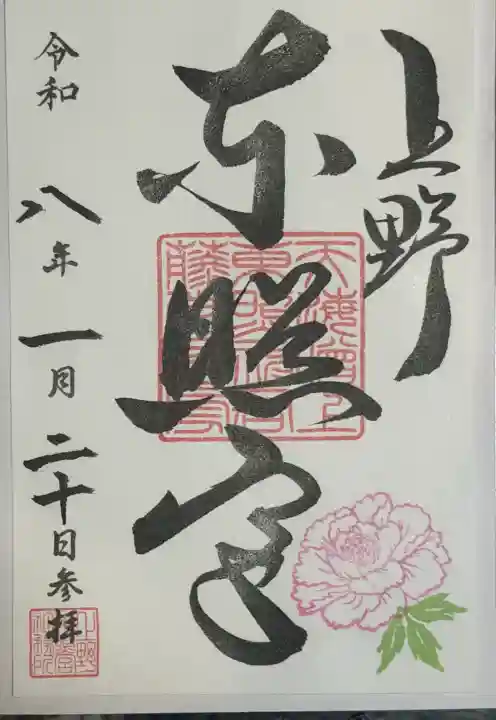 上野
東照宮
令和八年一月二十日参拝